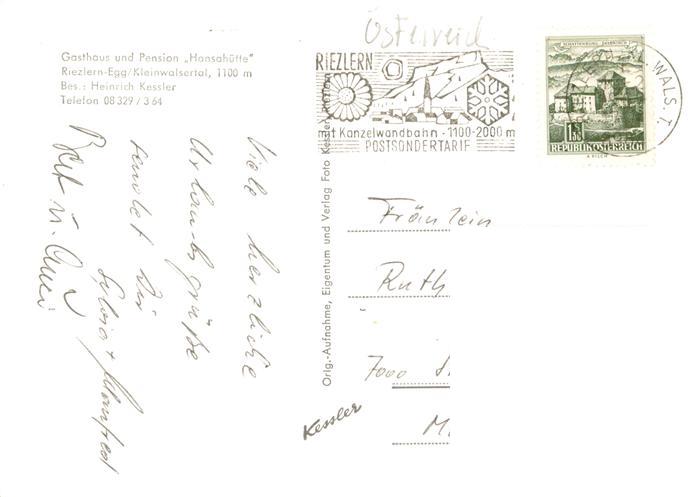 Gasthaus und Pension „Hansahütte"
Riezlern-Egg/Kleinwalsertal, 1100 m
Bes.: Heinrich Kessler
Telefon 08 329 / 3 64
Österreich
RIEZLERN
mit Kanzelwandbahn - 1100-2000 m
POSTSONDERTARIF
WALS. T.
SCHATTENBURG FELDKIRCH
1.80
REPUBLIK ÖSTERREICH
Viele herzliche
Urlaubsgrüße
sendet Dir
Sylvia + Manfred
Orig.-Aufnahme, Eigentum und Verlag Foto Kessler, Riezlern
Kessler
Fräulein
Ruth
7000